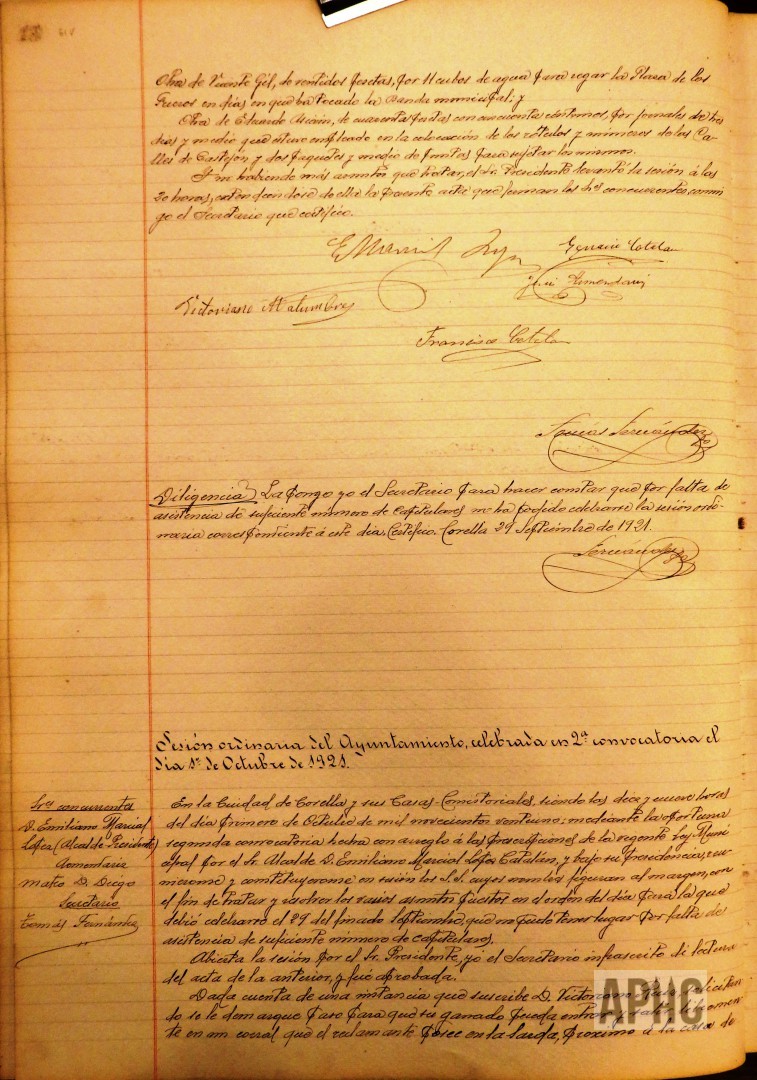 Otra de Vicente Gil, de ventidos pesetas, por 11 cubos de agua para regar la Plaza de los
Fueros en dias en que ha tocado la Banda municipal; y
Otra de Eduardo de cuarenta pesetas con cincuenta céntimos, por jornales de tres
dias y medio que estuvo empleado en la colocación de los rótulos y números de las Ca-
lles de Castejón, y dos paquetes y medio de puntas para sujetar los mismos.
Y no habiendo más asuntos que tratar, el Sr. Presidente levantó la sesión á las
20 horas, extendiendose de ella la presente acta que firman los Sres concurrentes, conmi-
go el Secretario que certifico.
E Marcial
Ignacio Catalan
Victoriano
Francisco Catalan
Tomás Fernández
Diligencia) La pongo yo el Secretario para hacer constar que por falta de
asistencia de suficiente número de Capitulares no ha podido celebrarse la sesión ordi-
naria correspondiente á este dia. Certifico. Corella 29 Septiembre de 1921.
Fernández
Sesión ordinaria del Ayuntamiento, celebrada en 2ª convocatoria el
día 1º de Octubre de 1921.
Sres concurrentes
D. Emiliano Marcial
López (Alcalde Presidente)
Armendariz
Mateo D. Diego
Secretario
Tomás Fernández
En la Ciudad de Corella y sus Casas-Consistoriales, siendo las diez y nueve horas
del día primero de Octubre de mil novecientos ventiuno; mediante la oportuna
segunda convocatoria hecha con arreglo á las prescripciones de la vigente Ley Muni-
cipal por el Sr. Alcalde D. Emiliano Marcial López Catalán, y bajo su presidencia, reu-
nieronse y constituyeronse en sesión los S.S. cuyos nombres figuran al margen, con
el fin de tratar y resolver los varios asuntos puestos en el orden del día para la que
debió celebrarse el 29 del finado Septiembre, que no pudo tener lugar por falta de
asistencia de suficiente número de capitulares.
Abierta la sesión por el Sr. Presidente, yo el Secretario infrascrito di lectura
del acta de la anterior, y fué aprobada.
Dada cuenta de una instancia que suscribe D. Victoriano solicitan
do se le demarque paso para que su ganado pueda entrar y salir libremen
te en un corral que el reclamante posee en la proximo á la casa de
APHC